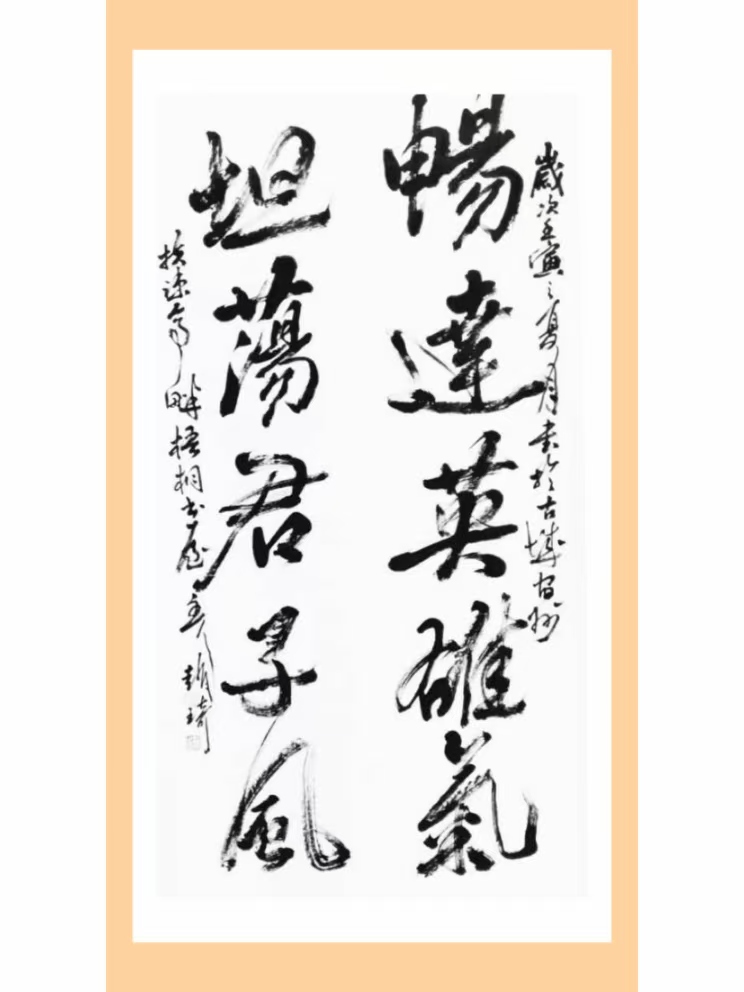 歲次壬寅之夏月書於古城宿州
暢達英雄氣
坦蕩君子風
畔梧桐書屋主人趙琦